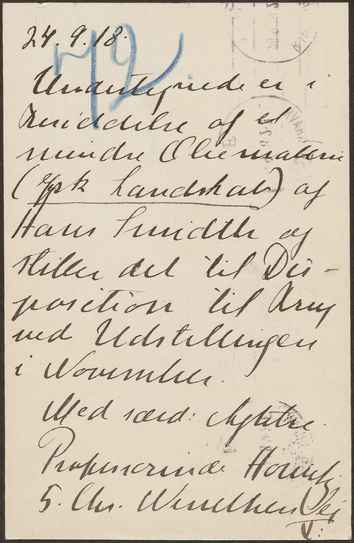 24.9.18.
72
Undertegnede er i
Besiddelse af et
mindre Oliemaleri
(jysk Landskab) af
Hans Smidth og
stiller det til Dis-
position til Brug
ved Udstillingen
i November.
Med særd: Agtelse.
Professorinde
5. Chr. Winthers Vej
V: